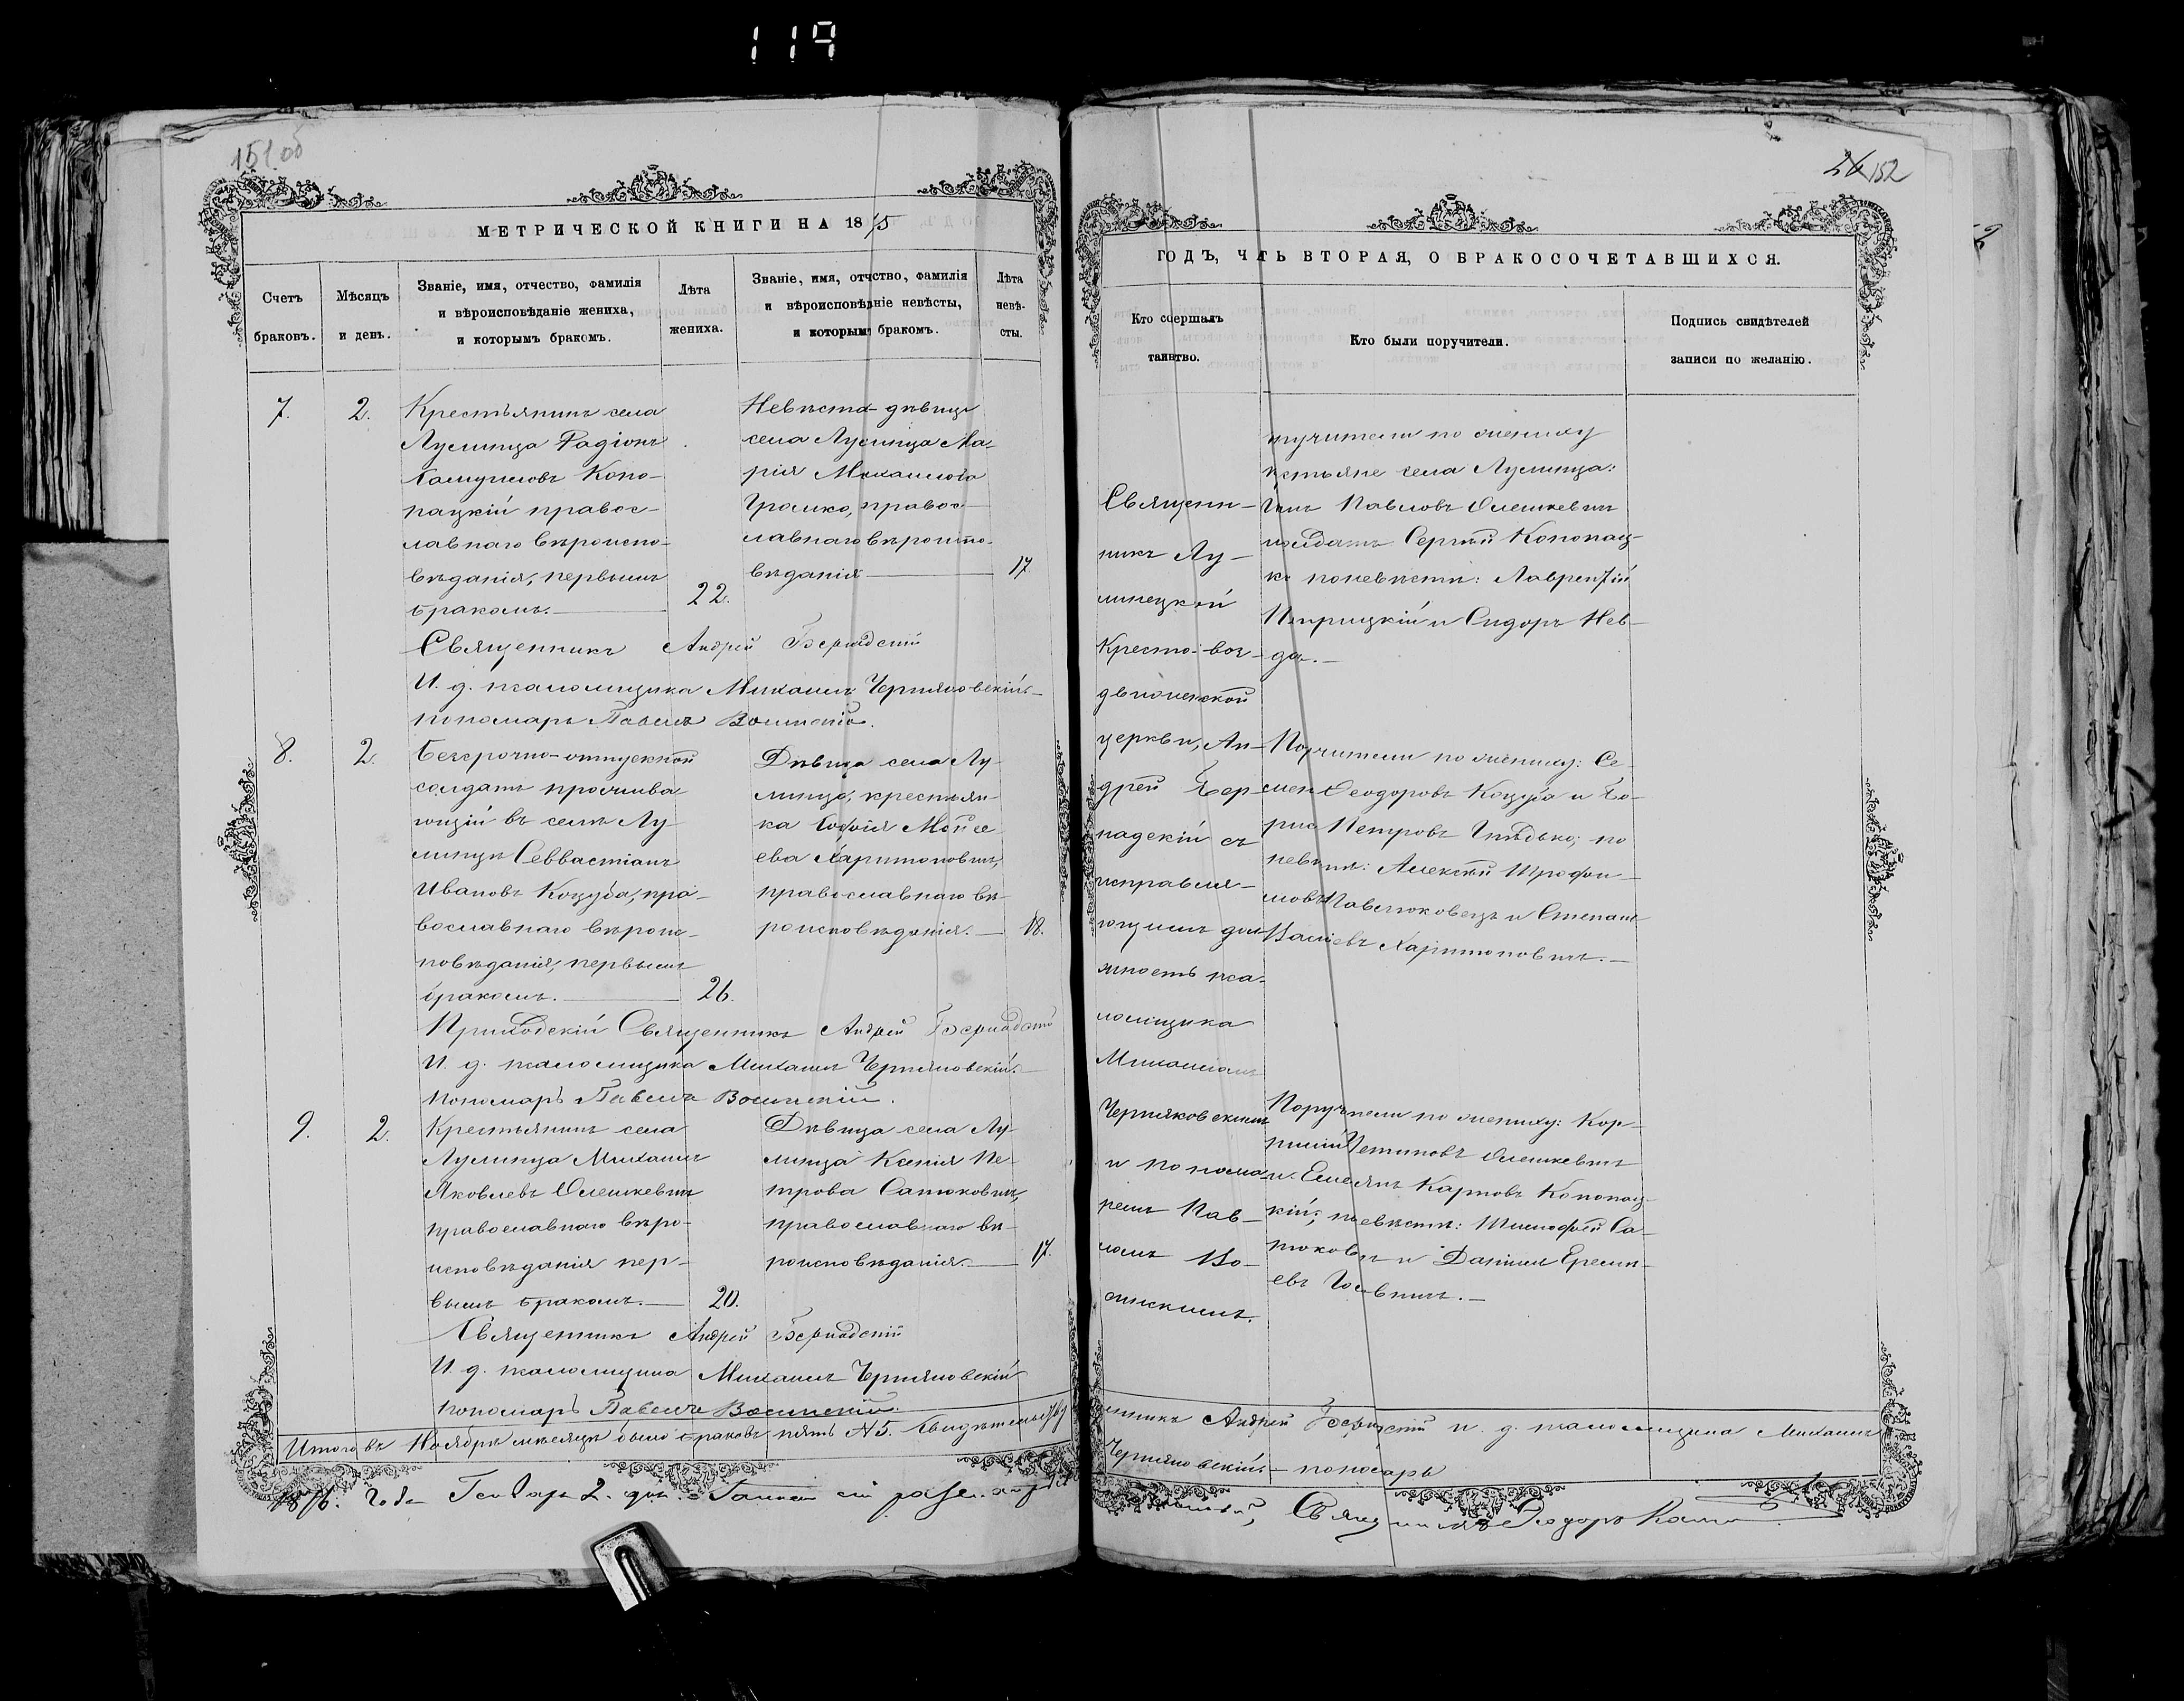 119
151 об
МЕТРИЧЕСКОЙ КНИГИ НА 1875
Счетъ
браковъ.
Мѣсяцъ
и день.
Званіе, имя, отчество, фамилія
и вѣроисповѣданіе жениха,
и которымъ бракомъ.
Лѣта
жениха.
Званіе, имя, отчство, фамилія
и вѣроисповѣдніе невѣсты,
и которымъ бракомъ.
Лѣта
невѣ-
сты.
7.
2.
Крестьянинъ села
Лулинца Радіонъ
Конo-
пацкій правос-
лавнаго вѣроиспо-
вѣданія, первымъ
бракомъ.
22.
Невѣста-дѣвица
села Лулинца Ма-
рія Михаилова
Громко, правос-
лавнаго вѣроиспо-
вѣданія
17.
Священникъ Андрей Бернадскій
И. д. псаломщика Михаилъ Черняховскій
пономарь Павелъ Волинскій.
8.
2.
Безсрочно-отпускной
солдатъ прожива
ющій въ селѣ Лу
линцѣ Севвастіанъ
Ивановъ Коцуба, пра-
вославнаго вѣроис-
повѣданія, первымъ
бракомъ.
26.
Дѣвица села Лу-
линца, крестьян-
ка Софія Моѵсе
ева Харитоновичъ,
православнаго вѣ-
роисповѣданія.
18.
Приходскій Священникъ Андрей Бернадскій
И. д. псаломщика Михаилъ Черняховскій.
пономарь Павелъ Волинскій.
9.
2.
Крестьянинъ села
Лулинца Михаилъ
Яковлевъ Олешкевичъ
православнаго вѣро-
исповѣданія пер-
вымъ бракомъ.
20.
Дѣвица села Лу-
линца Ксенія Пе-
трова Сапоковичъ,
православнаго вѣ-
роисповѣданія.
17.
Священникъ Андрей Бернадскій
И. д. псаломщика Михаилъ Черняховскій
пономарь Павелъ Волинскій.
Итого въ Ноябрѣ мѣсяцѣ было браковъ пять № 5.
1876. года Генваря 2. дня
26 152
ГОДЪ, ЧАТЬ ВТОРАЯ, О БРАКОСОЧЕТАВШИХСЯ.
Кто соершалъ
таинтво.
Кто были поручители.
Подпись свидѣтелей
записи по желанію.
Священ-
никъ Лу-
линецкой
Кресто-воз-
движенской
церкви, Ан-
дрей Бер-
надскій съ
исправля-
ющимъ дол
жность пса-
ломщика
Михаиломъ
Черняховскимъ
и понома-
ремъ Пав-
ломъ Во-
линскимъ.
ручители по жениху
крстьяне села Лулинца:
Павловъ Олешкевичъ
и солдатъ Сергѣй Конопац-
по невѣстѣ: Лаврентій
Петрицкій и Сидоръ Нев-
да.
Поручители по жениху: Се-
менъ Ѳеодоровъ Коцуба и Бо-
рисъ Петровъ Гнѣдько; по
невѣстѣ: Алексѣй Трофи-
мовъ Павлюковецъ и Степанъ
Харитоновичъ.
Поручители по жениху: Кор-
нилій Олешкевичъ
и Емельянъ Карповъ Конопац-
кій; по невѣстѣ: Тимофей Са-
поковичъ и Даніилъ Ереми-
евъ
Андрей Бернадскій и. д. псаломщика Михаилъ
Черняховскій пономарь
Священникъ Ѳеодоръ